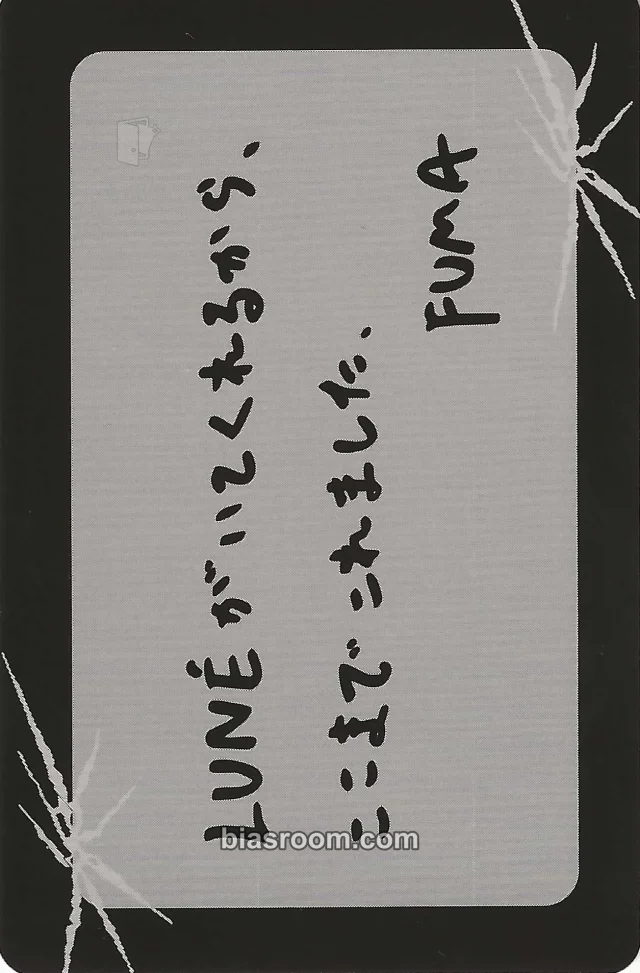 LUNÉがいてくれるから、
ここまでこれました、
FUMA
biasroom.com